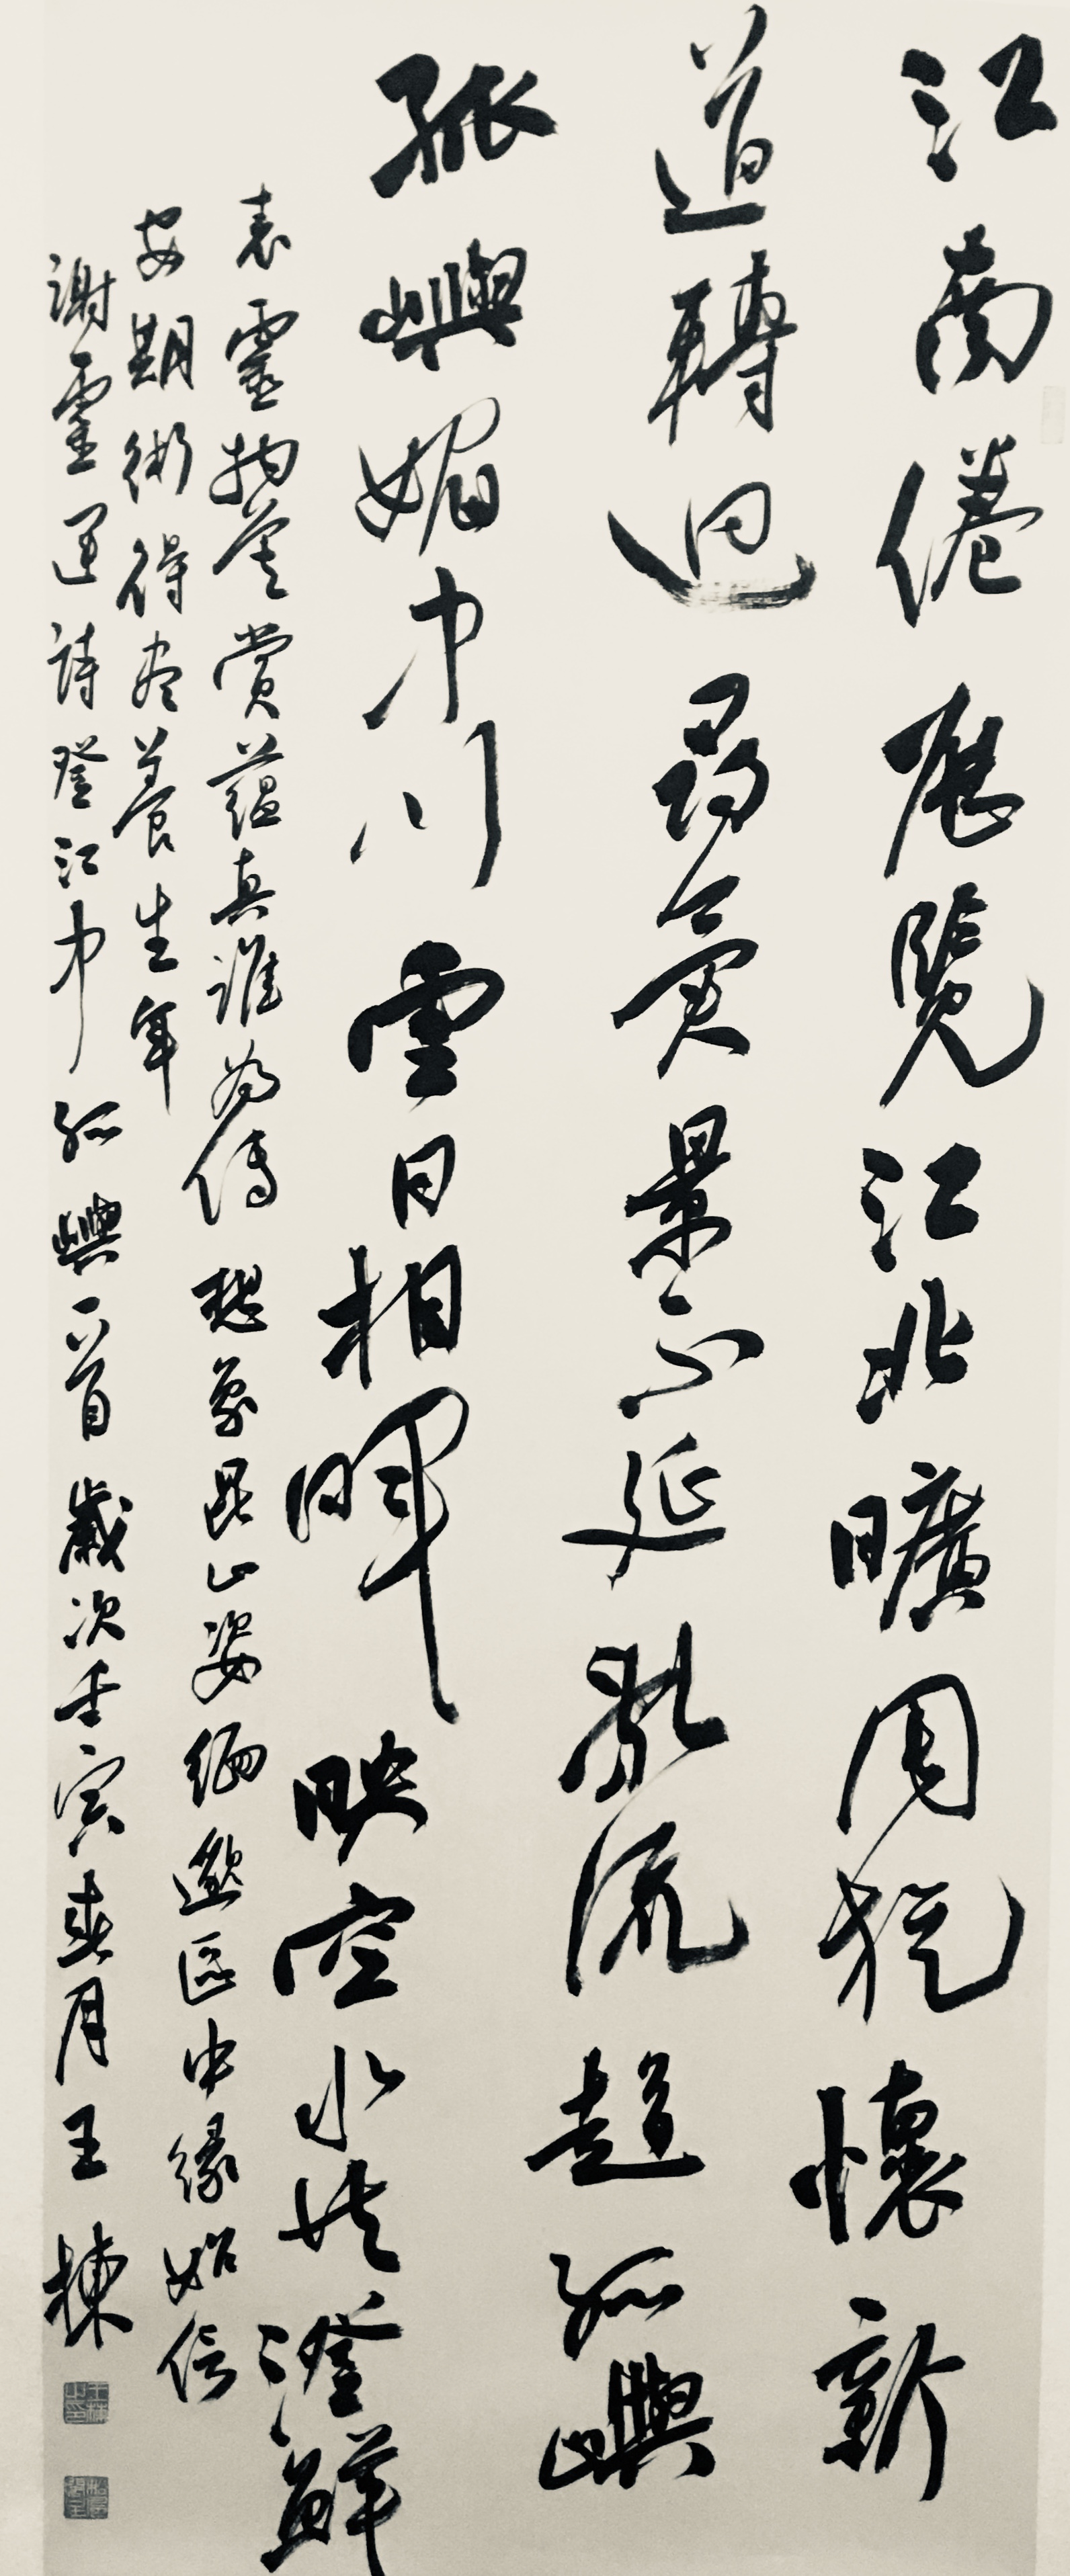 江南倦歷覽江北曠周旋懷新
道轉迥尋異景不延亂流趨孤嶼
孤嶼媚中川雲日相暉映空水共澄鮮
表靈物莫賞蘊真誰為傳想象崑山姿緬邈區中緣始信
安期術得盡養生年
謝靈運詩登江中孤嶼一首歲次壬寅春月王棟